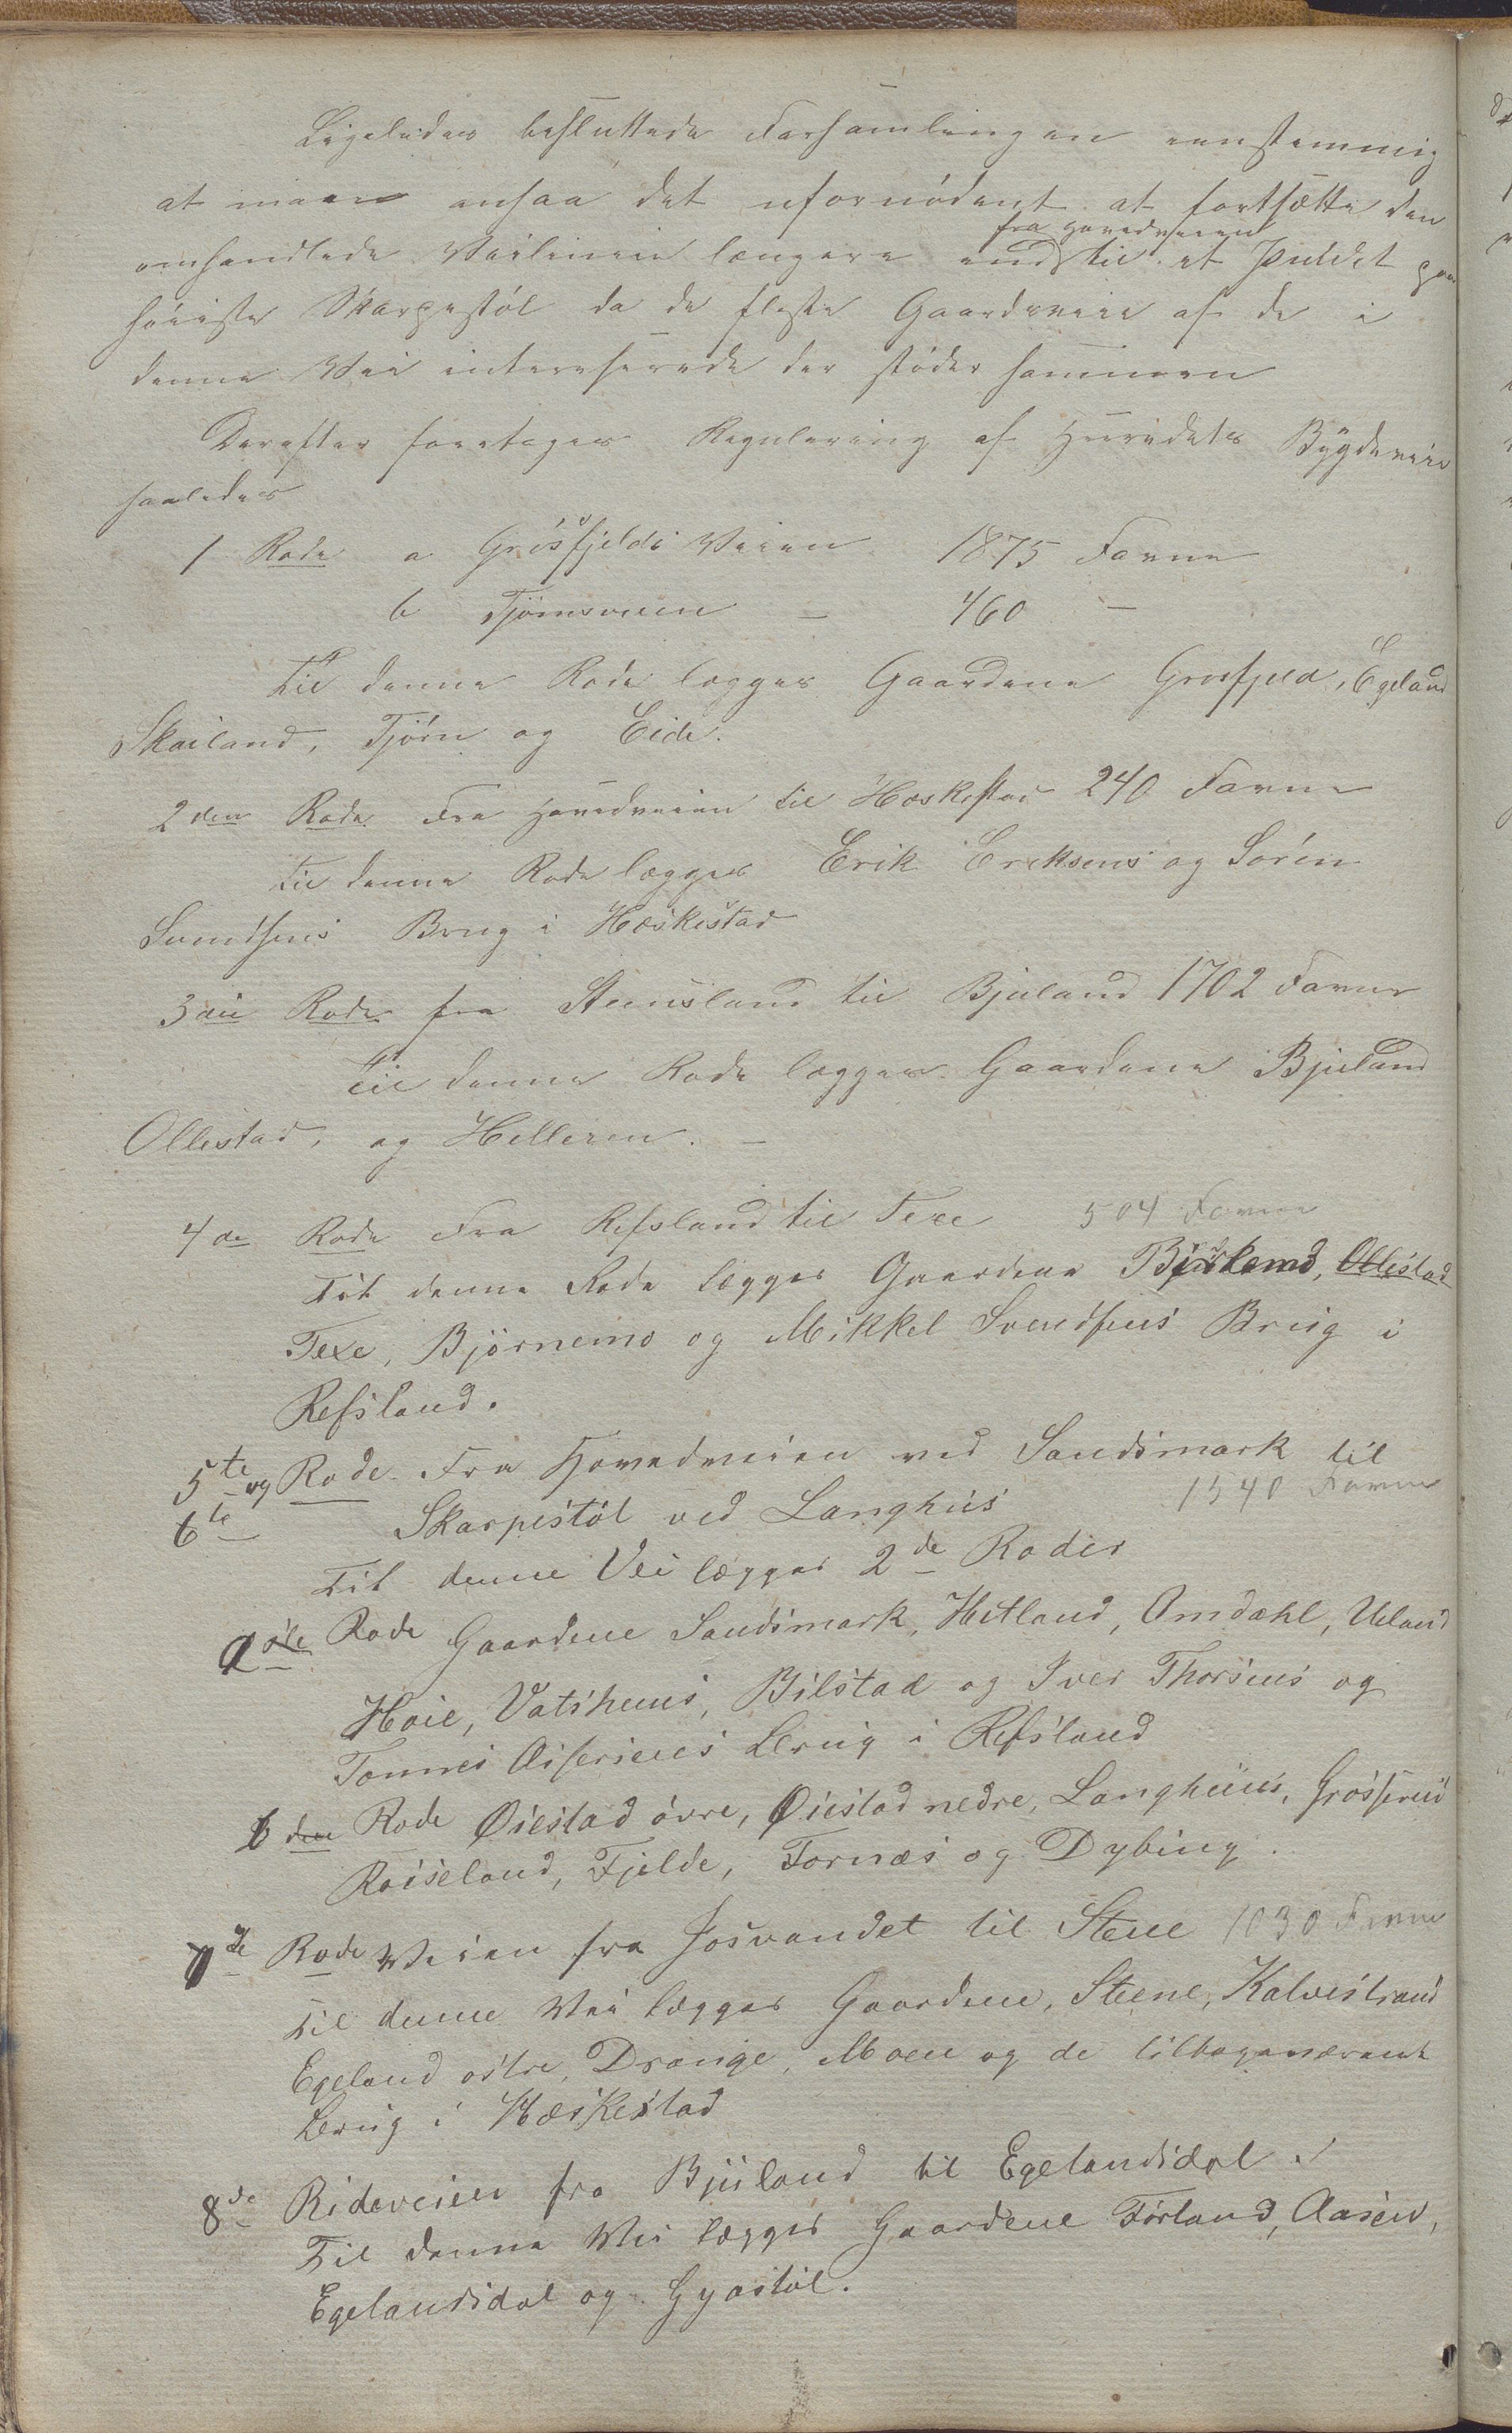 Ligeledes besluttede Forsamlingen eenstemmig
at man ansaa det ufornödent at fortsætte den
fra Hovedveien
omhandlede Veilinie længere end til et Punkt paa
höieste Skarpestöl da de fleste Gaardsveie af de i
denne Vei interesserede der stöder sammen
Derefter foretoges Regulering af Herredets Bygdeveie
saaledes
1 Rode a Grösfjelds Veien 1875 Favne
b Tjörnsveien - 460 -
Til denne Rode lægges Gaardene Grosfjeld, Egeland
Skailand, Tjörn og Eide.
2den Rode Fra Hovedveien til Hæskestad 240 Favne
til denne Rode lægges Erik Eriksens og Sören
Svendsens Brug i Hæskestad
3die Rode fra Steensland til Bjuland 1702 Favne
Til denne Rode lægges Gaardene Bjuland
Ollestad, og Helleren. -
4de Rode Fra Refsland til Texe 504 Favne
Til denne Rode lægges Gaardene Ollestad
Texe, Björnemo og Mikkel Svendsens Brug i
Refsland.
5te og Rode Fra Hovedveien ved Sandsmark til
6te Skarpestöl ved Langhus 1540 Favne
Til denne Vei lægges 2de Roder
a Rode Gaardene Sandsmark, Hetland, Omdahl, Ueland
Hoie, Vatshuus, Bilstad og Iver Thorsens og
Tonnes Brug i Refsland
b den Rode Öiestad övre, Öiestad nedre, Langhuus,
Roiseland, Fjelde, Tornæs og Dybing.
7de Rode Veien fra Josvandet til Steene 1030 Favne
Til denne Vei lægges Gaardene, Steene, Kalvestrand
Egeland ostre, Drange, Moen og de tilbageværende
Brug i Hæskestad
8de Rideveien fra Bjuland til Egelandsdal.
Til denne Vei lægges Gaardene Förland, Aasen,
Egelandsdal og Gyastöl.